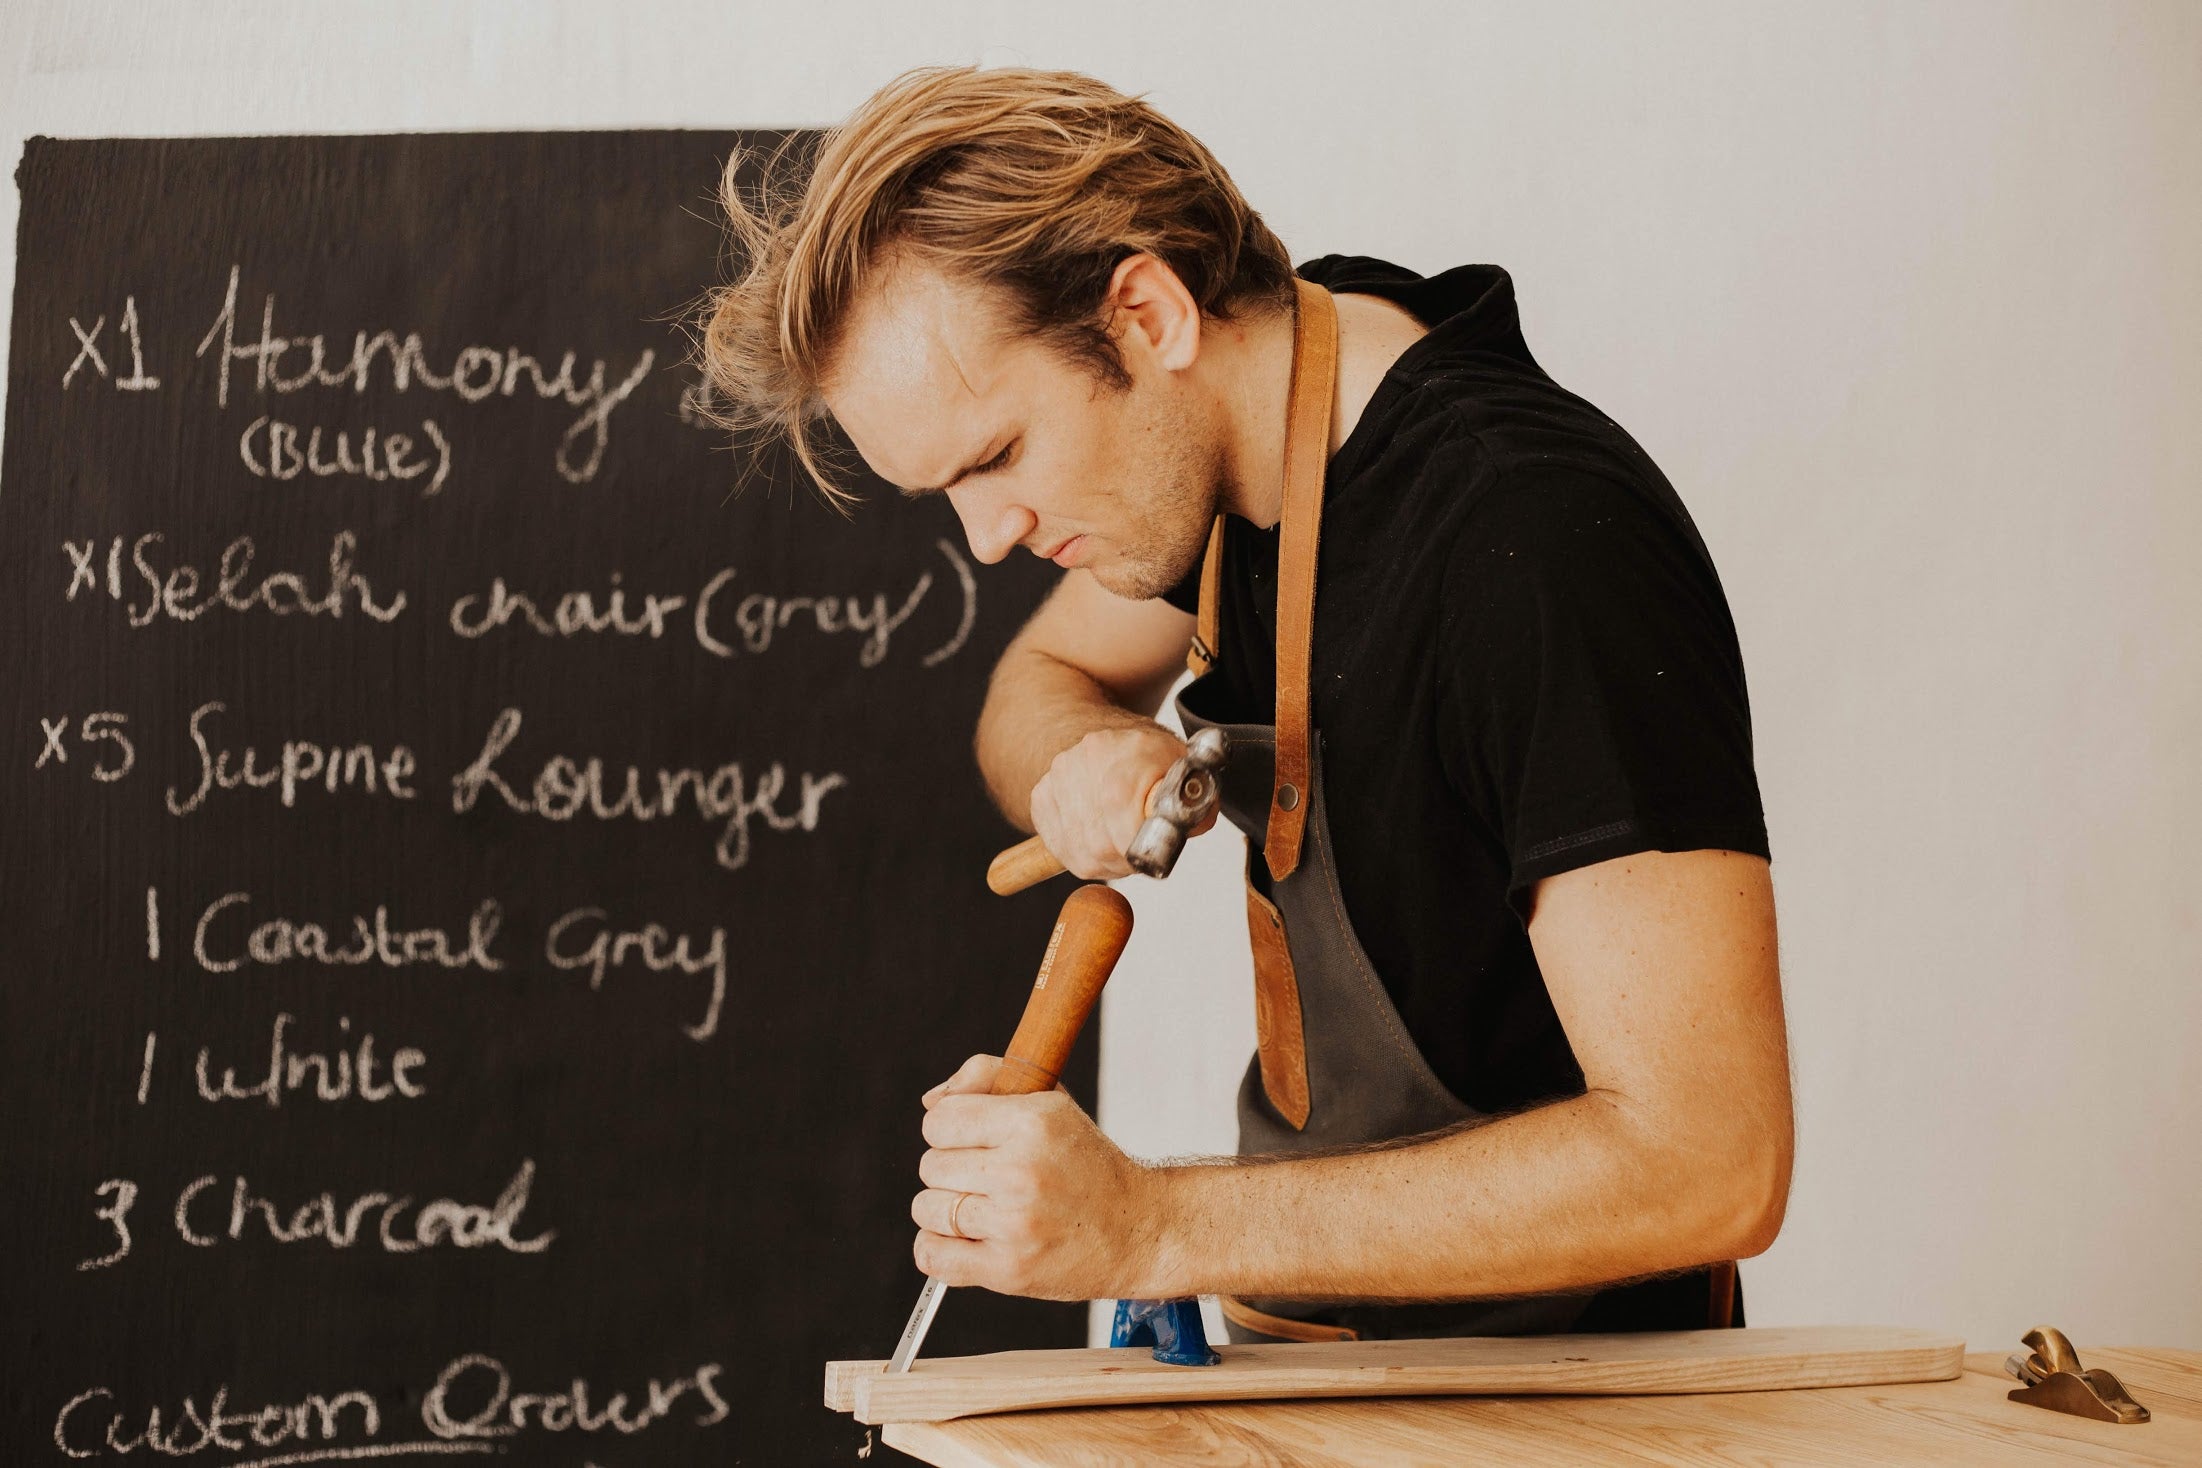 x1 Hamony
(Blue)
x1 Selah chair (grey)
x5 Supine Lounger
1 Coastal Grey
1 White
3 Charcoal
Custom Orders
narex 16